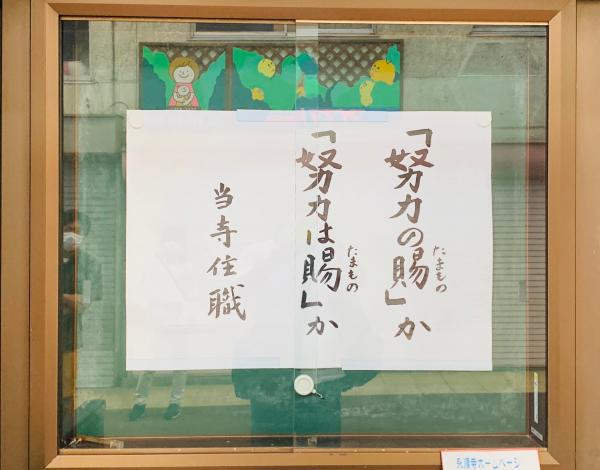 「努力の賜」か
たまもの
「努力は賜」か
たまもの
当寺住職
ホームページ